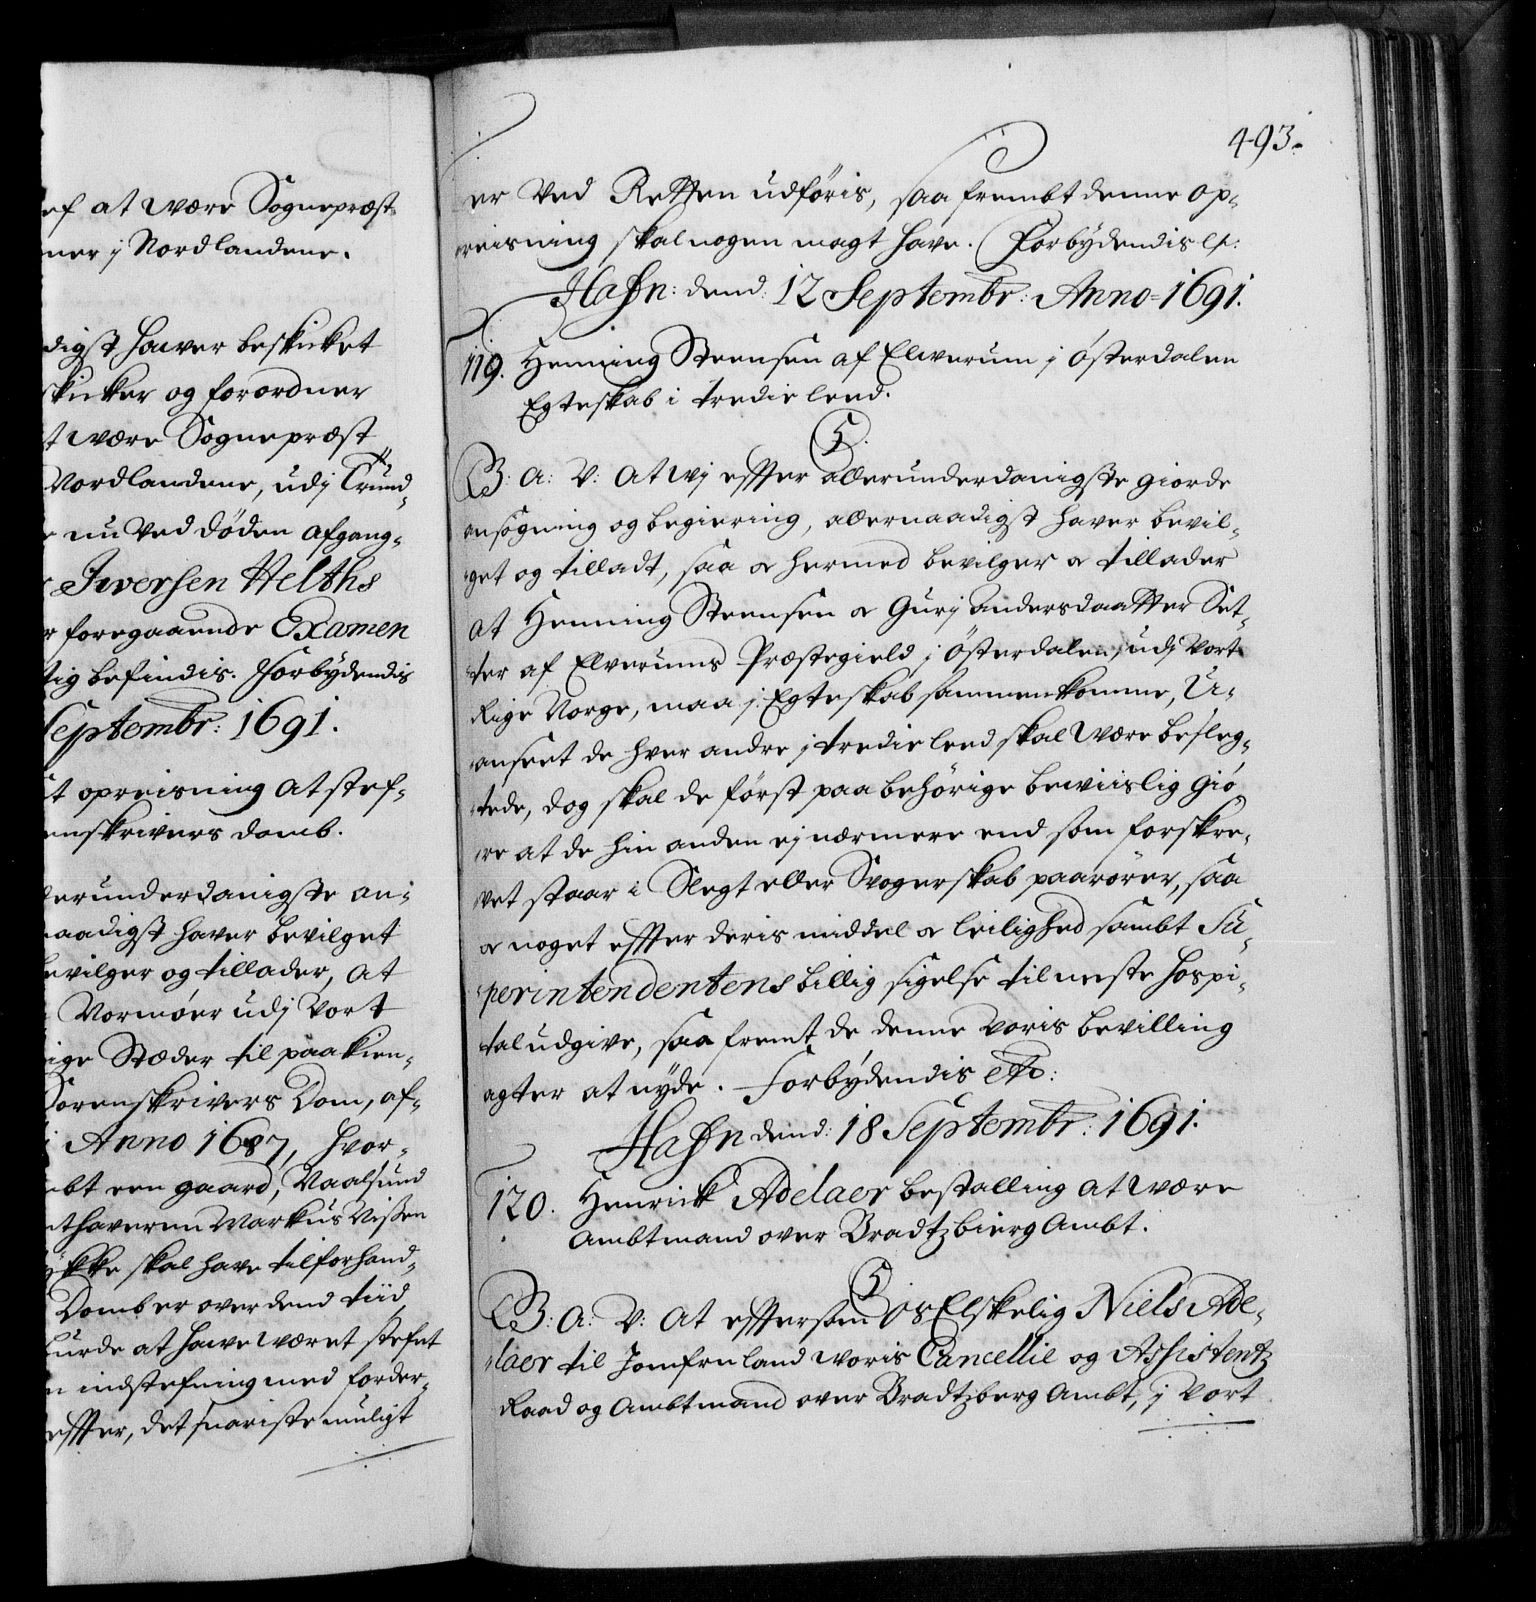 ef at være Sognepræst
ner j Nordlandene.
digst hawer beskicket
skicker og forordner
t være Sognepræst
Nordlandene, udj Trund-
nu ved døden afgang-
Iwersen Helths
r foregaaende Examen
tig befindis. Forbydendis
Septembr: 1691.
t opreisning at stef-
enskrivers domb.
erunderdanigste an-
naadigst haver bevilget
bevilger og tillader, at
Vormøer udj vort
ige Stæder til paakien-
Sorenskrivers Dom, af-
Anno 1687, hvor-
bt een gaard, Vaalsund
thaveren Markus Nissen
ycke skal have tilforhand-
Domb er over dend tiid
burde at hawe været stefnet
n indstefning med forder-
effter, det snariste muligt
493.
er ved Retten udføris, saa frembt denne op-
reisning skal nogen magt have. Forbydendis etc:
Hafn: dend: 12 Septembr: Anno 1691.
119. Henning Steensen af Elverum j Østerdalen
Egteskab i tredie leed.
C 5.
G: A: V: At wj effter allerunderdanigste giorde
ansøgning og begiering, allernaadigst haver bevil-
get og tilladt, saa og hermed bevilger og tillader
at Henning Steensen og Gurj Andersdaatter Set-
ter af Elverums Præstegield j Østerdalen, udj vort
Rige Norge, maa j Egteskab sammenkomme, U-
anseet de hver andre j tredie leed skal være besleg-
tede, dog skal de først paa behørige beviislig giø-
re at de hin anden ej nærmere end som forskre-
vet staar i Slegt eller Svogerskab paarører, saa
og noget effter deris middel og leilighed sambt Su-
perintendentens billig sigelse til neste Hospi-
tal udgive, saa fremt de denne voris bevilling
agter at nyde. Forbydendis etc:
Hafn dend: 18 Septembr: 1691.
120. Henrick Adelaer bestalling at være
Ambtmand over Bradtzbierg Ambt.
C 5.
G: A: V: At effterson Os Elskelig Niels Ade-
laer til Jomfruland woris Cancellie og Assistentz
Raad og Ambtmand over Bradtzberg Ambt, j vort